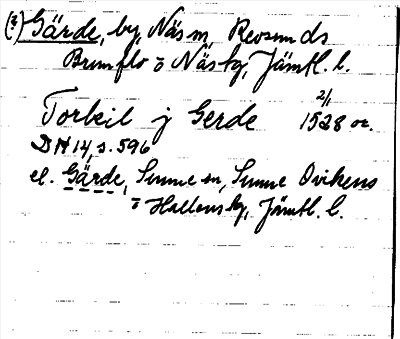 (?) Gärde, by, Näs sn, Revsunds
Brunflo o Näs tg, Jämtl. l.
Torkil j Gerde 1528 2/1 or.
DN 14, s. 596
el. Gärde, Sunne sn, Sunne Ovikens
o Hallens tg, Jämtl. l.